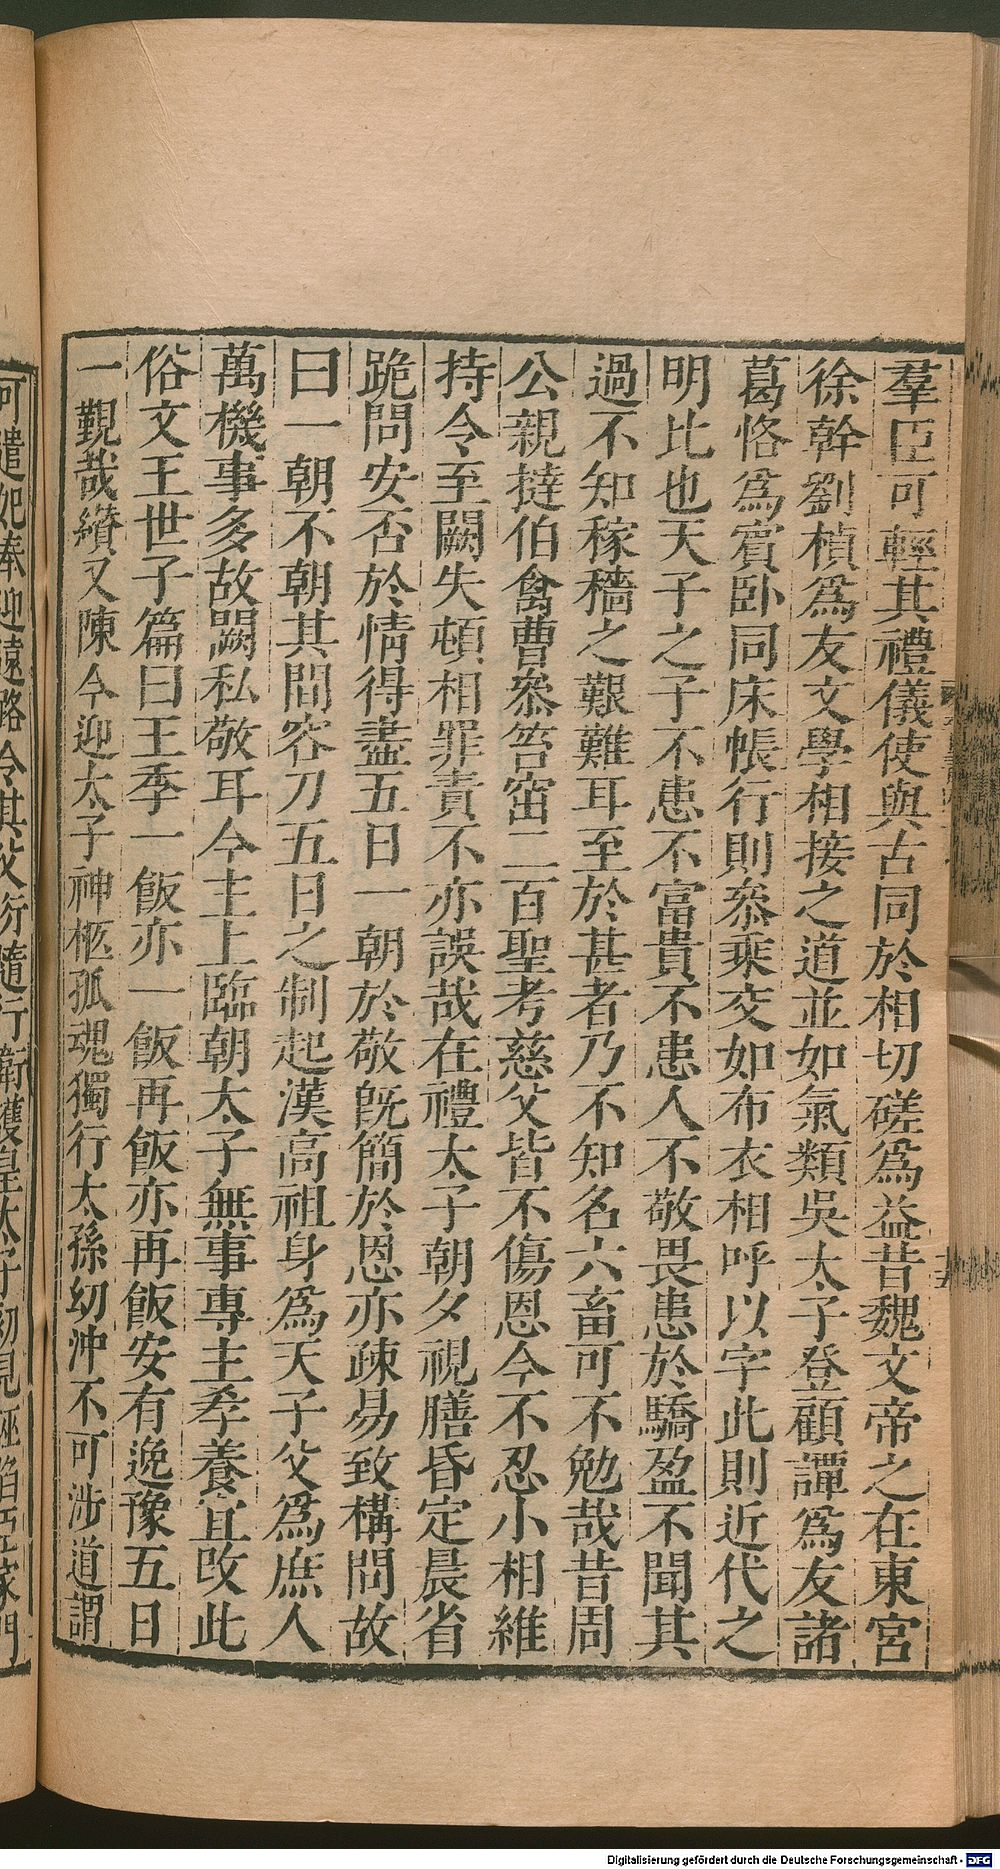 羣臣可輕其禮儀使與古同於相切磋爲益昔魏文帝之在東宮
徐幹劉楨爲友文學相接之道並如氣類吳太子登顧譚爲友諸
葛恪爲賔臥同床帳行則叅乘交如布衣相呼以字此則近代之
明比也天子之子不患不富貴不患人不敬畏患於驕盈不聞其
過不知稼穡之艱難耳至於甚者乃不知名六畜可不勉哉昔周
公親撻伯禽曹叅笞窋二百聖考慈父皆不傷恩今不忍小相維
持令至闕失頓相罪責不亦誤哉在禮太子朝夕視膳昏定晨省
跪問安否於情得盡五日一朝於敬旣簡於恩亦疎易致構間故
曰一朝不朝其間容刀五日之制起漢高祖身爲天子父爲庶人
萬機事多故闕私敬耳今主上臨朝太子無事專主孝養宜改此
俗文王世子篇曰王季一飯亦一飯再飯亦再飯安有逸豫五日
一覲哉纘又陳今迎太子神柩孤魂獨行太孫幼沖不可涉道謂
可遣妃奉迎遠路令其父衍隨行衛護皇太子初見誣陷臣家門
Digitalisierung gefördert durch die Deutsche Forschungsgemeinschaft - DFG